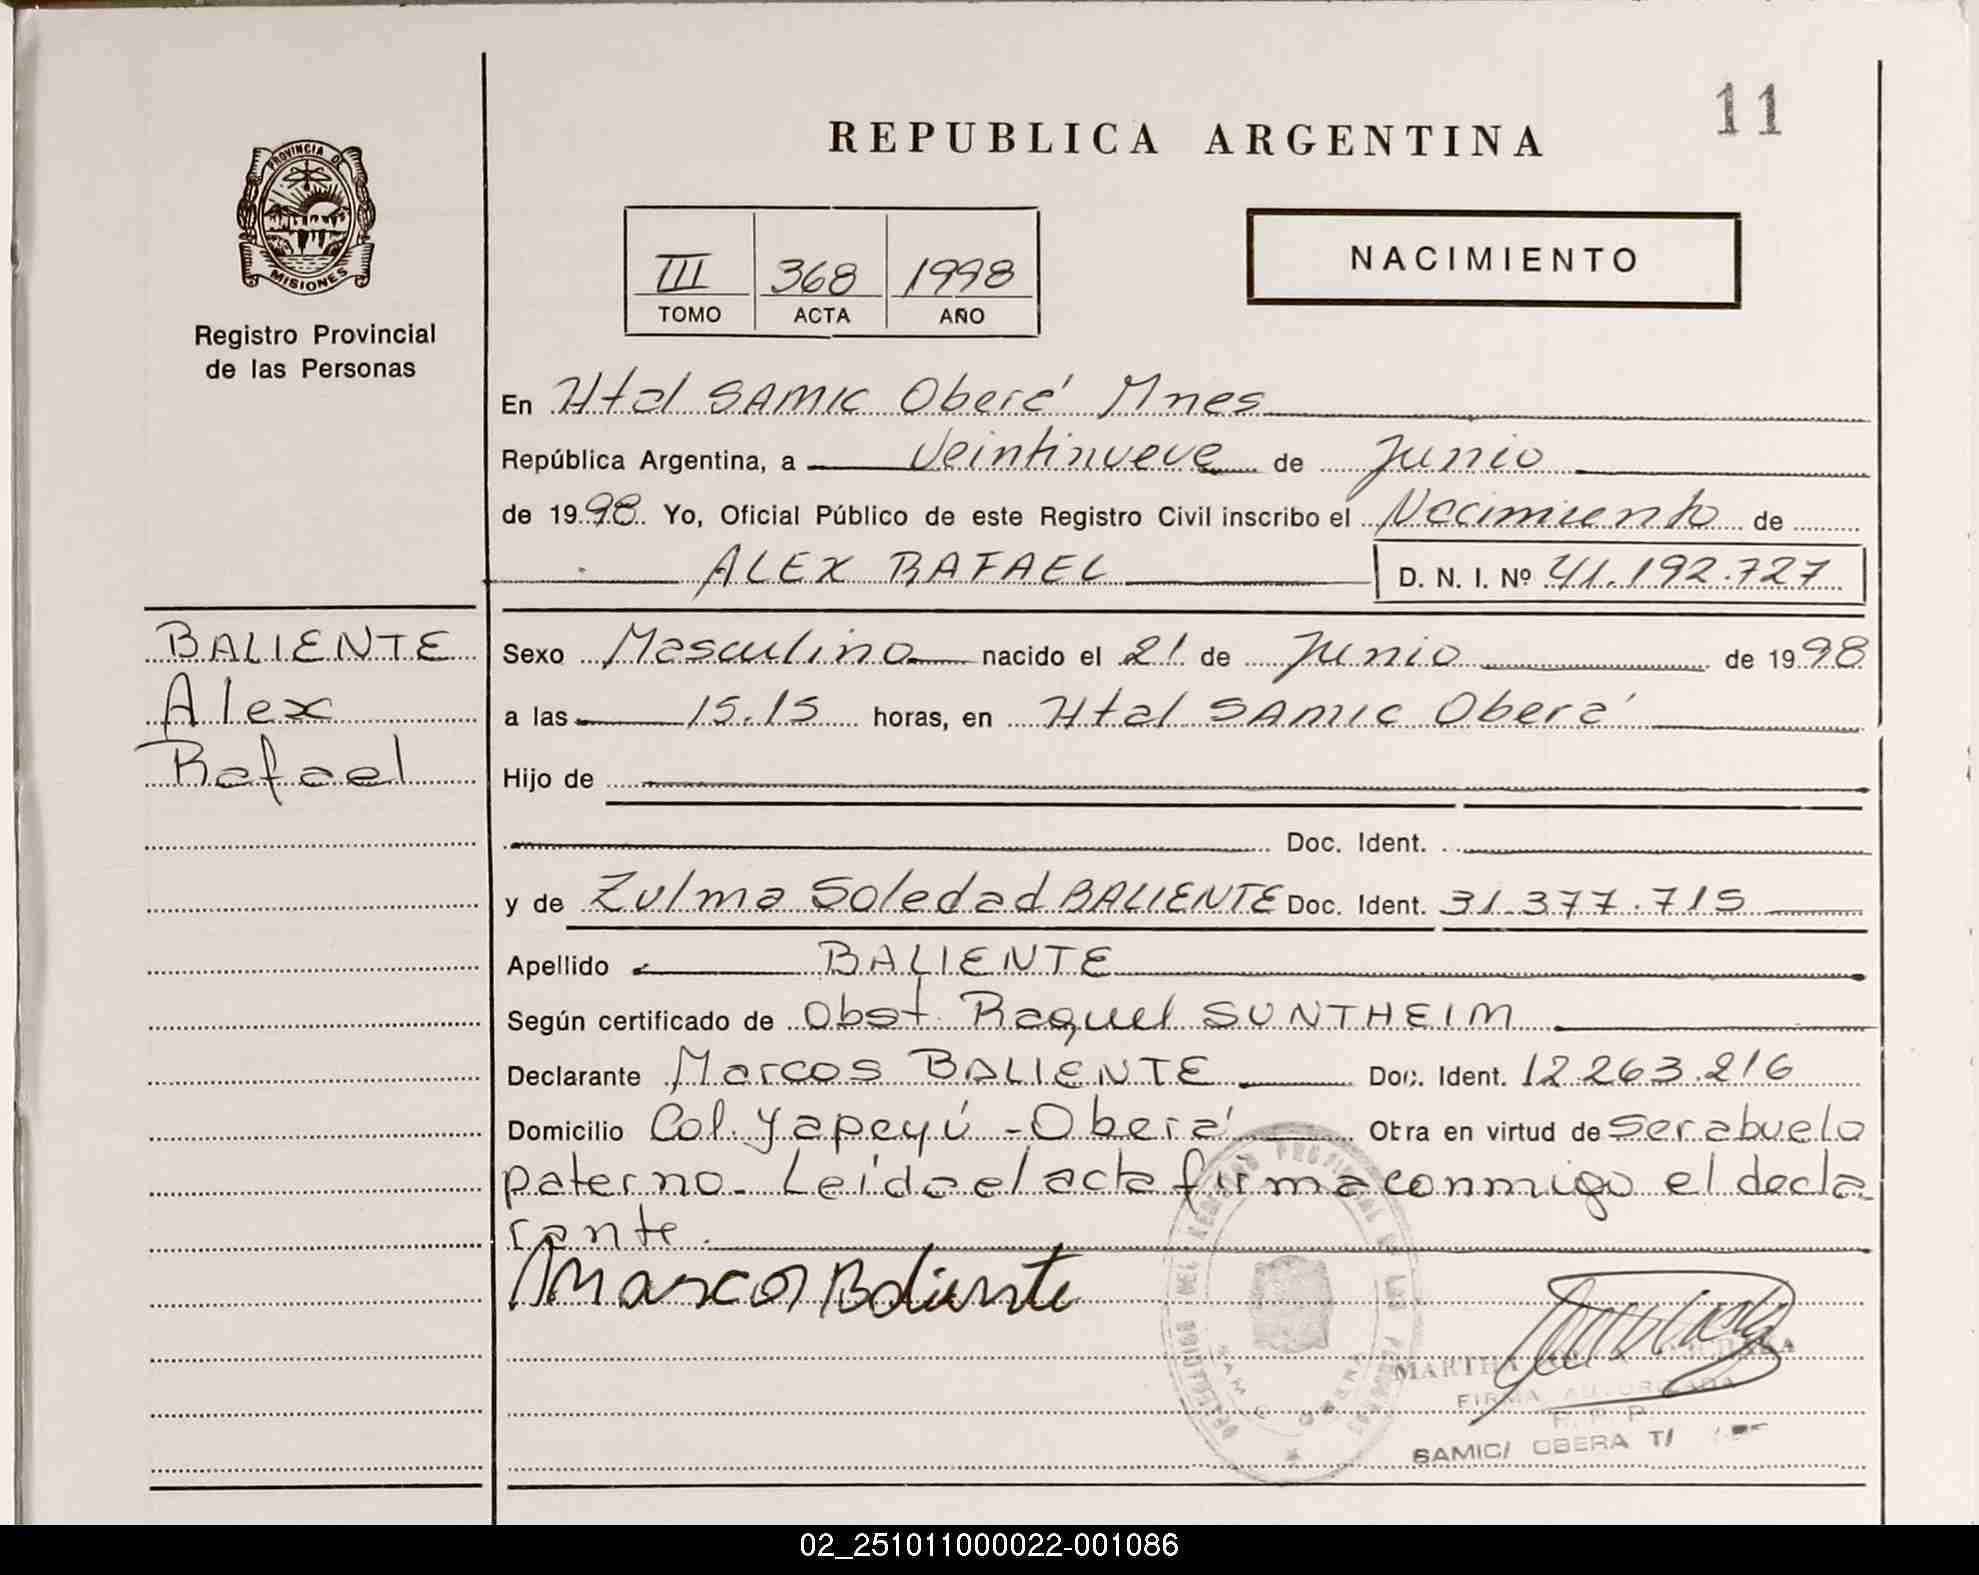 11
REPUBLICA ARGENTINA
PROVINCIA DE
MISIONES
NACIMIENTO
III 368 1998
TOMO ACTA AÑO
Registro Provincial
de las Personas
En Htal SAMIC Oberá Mnes
República Argentina, a Veintinueve de Junio
de 1998 Yo, Oficial Público de este Registro Civil inscribo el Nacimiento de
ALEX RAFAEL D. N. I. Nº 41.192.727
BALIENTE
Alex
Rafael
Sexo Masculino nacido el 21 de Junio de 1998
a las 15.15 horas, en Htal SAMIC Oberá
Hijo de
Doc. Ident.
y de Zulma Soledad BALIENTE Doc. Ident. 31.377.715
Apellido BALIENTE
Según certificado de Obst. Raquel SUNTHEIM
Declarante Marcos BALIENTE Doc. Ident. 12.263.216
Domicilio Col. Yapeyú - Oberá Obra en virtud de ser abuelo
paterno. Leída el acta firma conmigo el decla
rante.
Marcos Baliente
MARTHA
FIRMA AUTORIZADA
R. P. P.
SAMIC/ OBERA T/
02_251011000022-001086